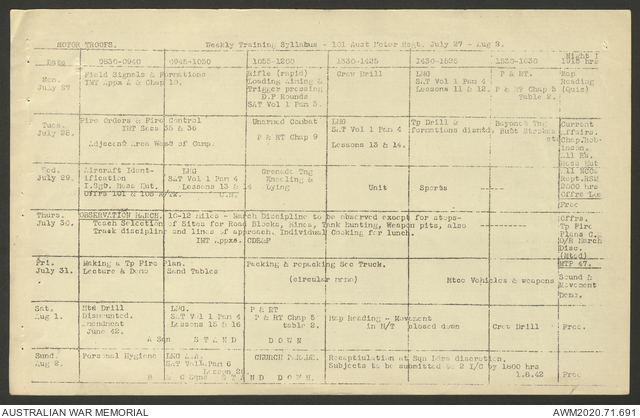 MOTOR TROOPS. Weekly Training Syllabus - 101 Aust Motor Regt. July 27 - Aug 2.
Date 0830-0940 0945-1050 1055-1200 1330-1425 1430-1525 1530-1630 Night 1915 hrs
Mon. Field Signals & Formations Rifle (rapid) Crew Drill LMG P & RT. Map
July 27 IMT Appx A & Chap 10. Loading Aiming & SAT Vol 1 Pam 4 Reading
Trigger pressing Lessons 11 & 12. P & RT Chap 5 (Quiz)
D.P Rounds Table 2.
SAT Vol 1 Pam 3.
Tues. Fire Orders & Fire Control Unarmed Combat LMG Tp Drill & Bayonet Tng Current
July 28. IMT Secs 35 & 36 SAT Vol 1 Pam 4 formations dismtd. Butt Strokes Affairs.
P & RT Chap 9 etc Chap. Rob-
Adjacent Area West of Camp. Lessons 13 & 14. inson.
All Rks.
Mess Hut
Wed. Aircraft Ident- LMG Grenade Tng All NCOs
July 29. ification SAT Vol 1 Pam 4 Kneeling & Rept. RSM
Lessons 13 & 14 Lying Unit Sports ----- 2000 hrs
Offrs 101 & 108 Offrs Lec
Free
Thurs. OBSERVATION MARCH. 10-12 miles - March Discipline to be observed except for stops- Offrs.
July 30. Teach Selection of Sites for Road Blocks, Mines, Tank hunting, Weapon pits, also Tp Fire
Track discipline and lines of approach. Individual Cooking for lunch. Plans C.
IMT Appxs. CDE&F O/R March
Disc.
(Mtcd)
Fri. Making a Tp Fire Plan. Packing & repacking Sec Truck. MTP 47.
July 31. Lecture & Demo Sand Tables Mtce Vehicles & weapons Sound &
(circular memo) Movement
Demo.
Sat. Mtd Drill LMG. P & RT
Aug 1. Discussed. SAT Vol 1 Pam 4 P & RT Chap 5 Map Reading - Movement
Amendment Lessons 15 & 16 table 2. in M/T closed down Crew Drill Free.
June 42.
A Sqn STAND DOWN
Sund. Personal Hygiene LMG A.A. CHURCH PARADE. Recapitulation at Sqn Ldrs discretion.
Aug 2. SAT Vol1 Pam 6 Subjects to be submitted to 2 I/C by 1600 hrs Free.
B & C Sqns STAND DOWN 1.8.42
AUSTRALIAN WAR MEMORIAL AWM2020.71.691